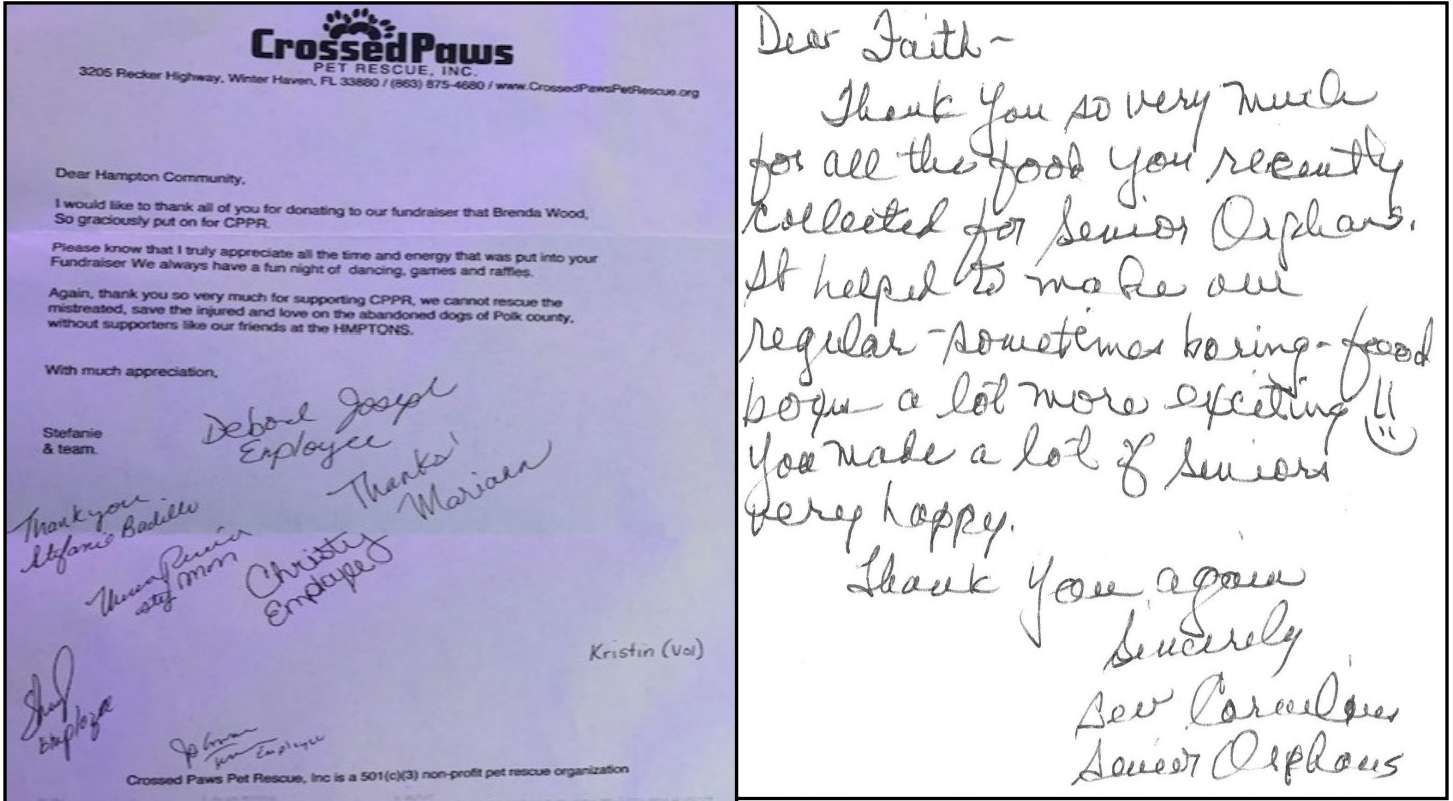 CrossedPaws
PET RESCUE, INC.
3205 Recker Highway, Winter Haven, FL 33880 / (863) 875-4680 / www.CrossedPawsPetRescue.org
Dear Hampton Community,
I would like to thank all of you for donating to our fundraiser that Brenda Wood,
So graciously put on for CPPR.
Please know that I truly appreciate all the time and energy that was put into your
Fundraiser We always have a fun night of dancing, games and raffles.
Again, thank you so very much for supporting CPPR, we cannot rescue the
mistreated, save the injured and love on the abandoned dogs of Polk county,
without supporters like our friends at the HMPTONS.
With much appreciation,
Stefanie
& team.
Joseph
Employee
Thanks!
Mariann
Thank you
Stefanie Badillo
Mom
Christy
Employee
Kristin (Vol)
Employee
Employee
Crossed Paws Pet Rescue, Inc is a 501(c)(3) non-profit pet rescue organization
Dear Faith~
Thank you so very much
for all the food you recently
collected for Senior Orphans.
It helped to make our
regular - sometimes boring - food
boxes a lot more exciting !!
You made a lot of seniors
very happy.
Thank you again
Sincerely
Bev Cornelius
Senior Orphans